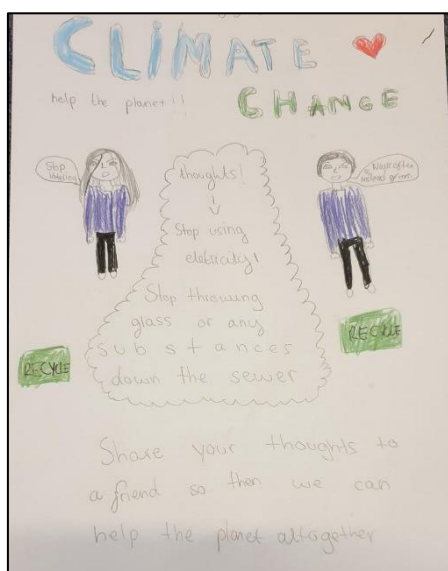 CLIMATE
help the planet!!
CHANGE
Stop
thoughts!
Walk often
instead of cars
Stop using
eletricity!
Stop throwing
glass or any
substances
down the sewer
RECYCLE
RECYCLE
Share your thoughts to
a friend so then we can
help the planet altogether